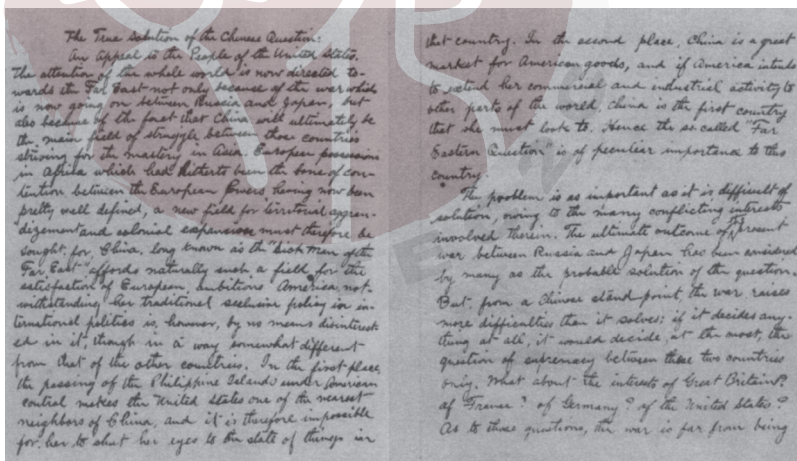 The True Solution of the Chinese Question:
An Appeal to the People of the United States.
The attention of the whole world is now directed to-
wards the Far East not only because of the war which
is now going on between Russia and Japan, but
also because of the fact that China will ultimately be
the main field of struggle between those countries
striving for the mastery in Asia. European possessions
in Africa which had hitherto been the bone of con-
tention between the European Powers having now been
pretty well defined, a new field for territorial aggran-
dizement and colonial expansion must therefore be
sought for, China, long known as the "Sick Man of the
Far East" affords naturally such a field for the
satisfaction of European ambitions. America not-
withstanding her traditional seclusive policy in in-
ternational politics is, however, by no means disinterest-
ed in it, though in a way somewhat different
from that of the other countries. In the first place,
the passing of the Philippine Islands under American
control makes the United States one of the nearest
neighbors of China, and it is therefore impossible
for her to shut her eyes to the state of things in
that country. In the second place, China is a great
market for American goods, and if America intends
to extend her commercial and industrial activity to
other parts of the world, China is the first country
that she must look to. Hence the so-called "Far
Eastern Question" is of peculiar importance to this
country.
The problem is as important as it is difficult of
solution, owing to the many conflicting interests
involved therein. The ultimate outcome of present
war between Russia and Japan has been considered
by many as the probable solution of the question.
But, from a Chinese stand-point, the war raises
more difficulties than it solves; if it decides any-
thing at all, it would decide, at the most, the
question of supremacy between these two countries
only. What about the interests of Great Britain?
of France? of Germany? of the United States?
As to those questions, the war is far from being